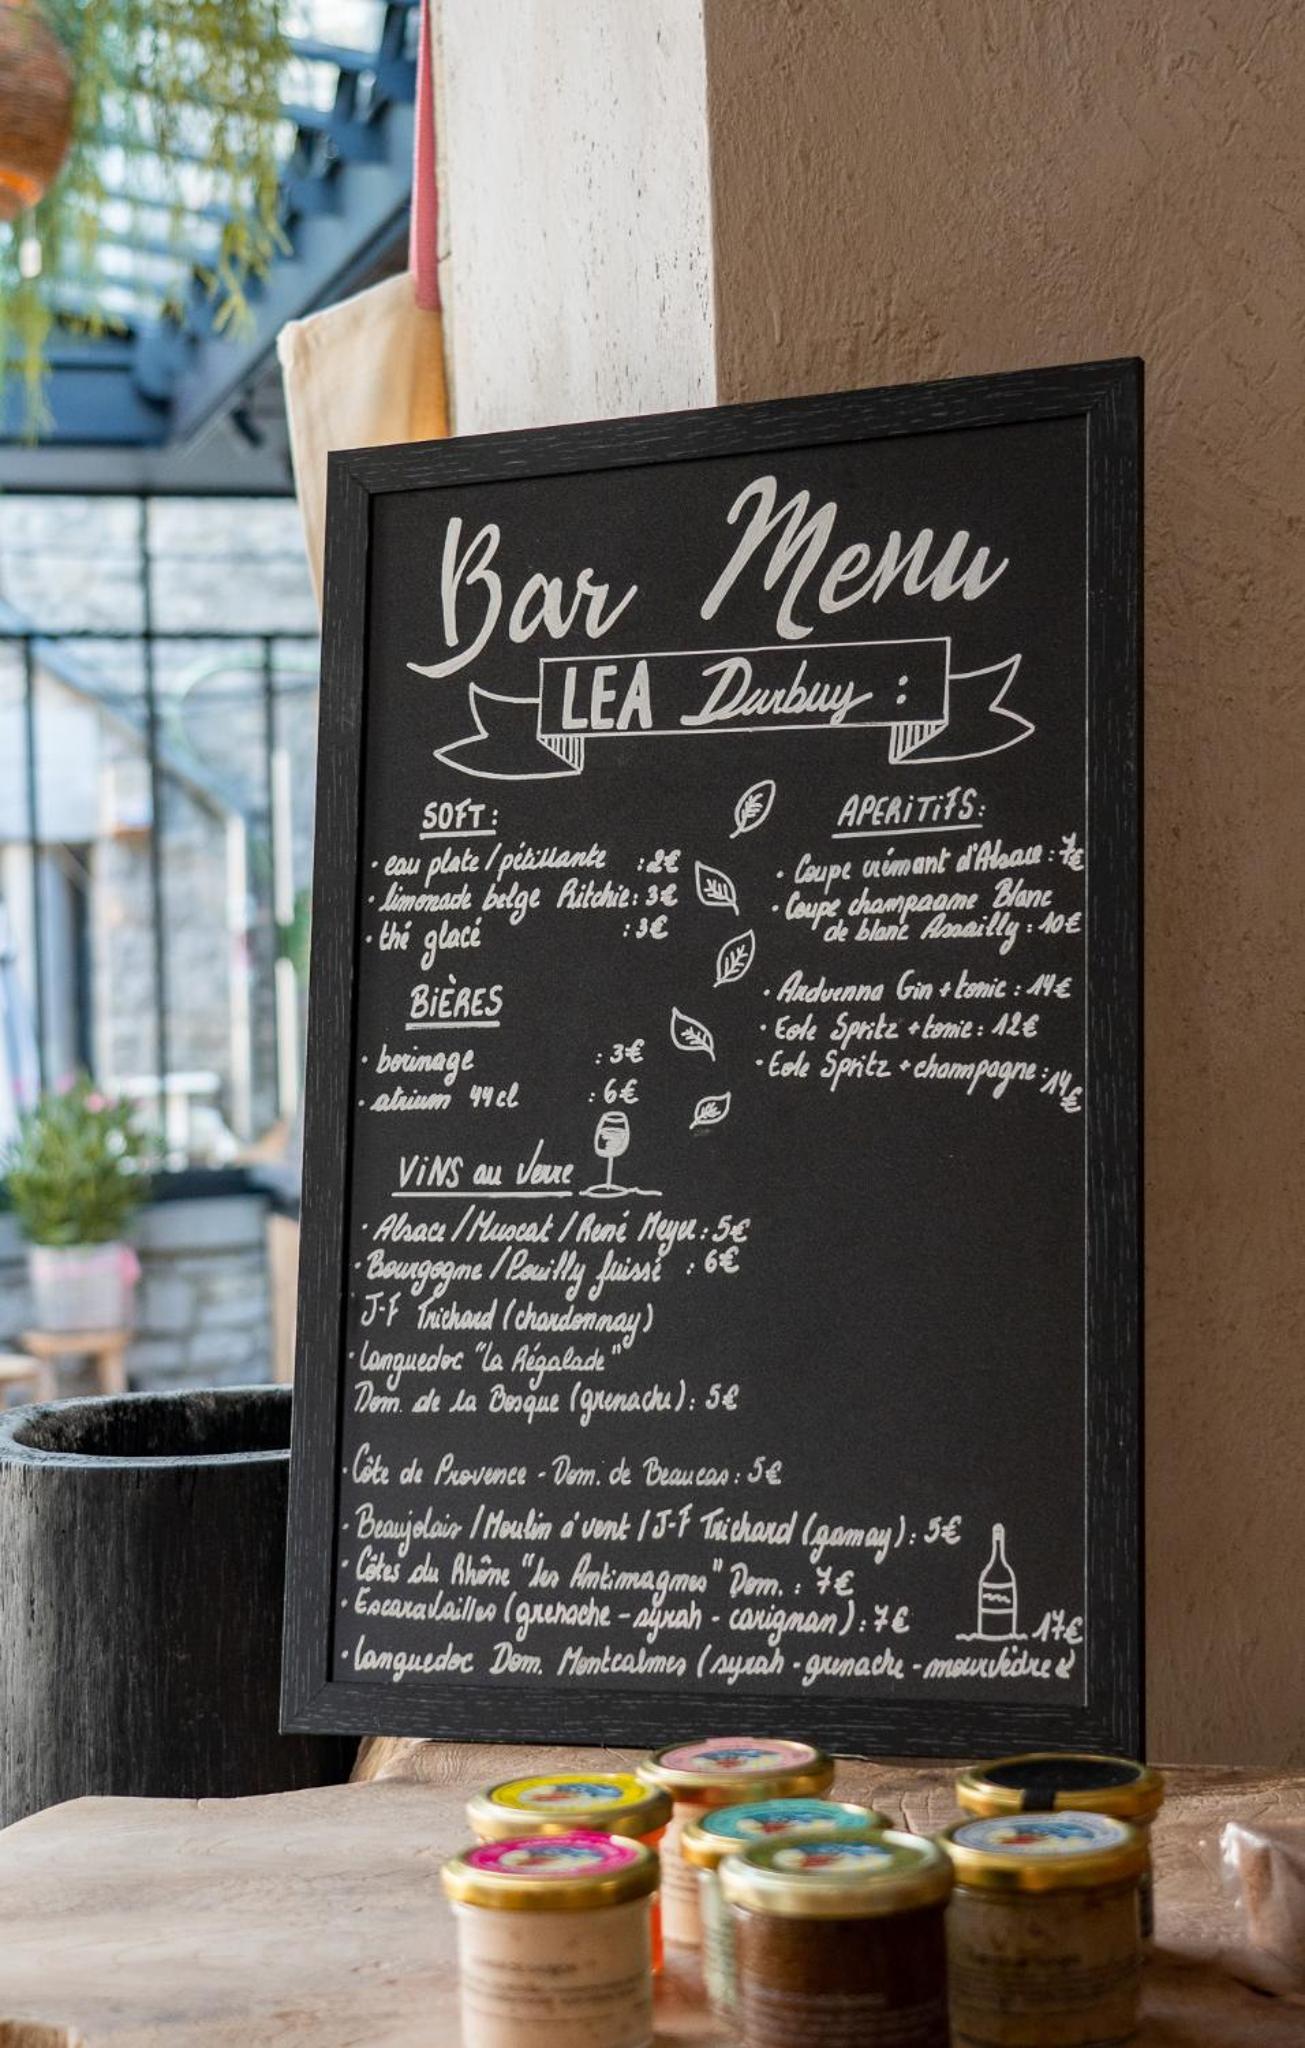 Bar Menu
LEA Durbuy :
SOFT :
• eau plate / pétillante : 2€
• limonade belge Ritchie : 3€
• thé glacé : 3€
BIÈRES
• borinage : 3€
• atrium 44cl : 6€
APERITIFS :
• Coupe crémant d'Alsace : 7€
• Coupe champagne Blanc
de blanc Assailly : 10€
• Arduenna Gin + tonic : 14€
• Eole Spritz + tonic : 12€
• Eole Spritz + champagne : 14€
VINS au Verre
• Alsace / Muscat / René Meyer : 5€
• Bourgogne / Pouilly fuissé : 6€
J-F Trichard (chardonnay)
• Languedoc "la Régalade"
Dom. de la Bosque (grenache) : 5€
• Côte de Provence - Dom. de Beaucas : 5€
• Beaujolais / Moulin à vent / J-F Trichard (gamay) : 5€
• Côtes du Rhône "les Antimagnes" Dom. : 7€
• Escaravailles (grenache - syrah - carignan) : 7€
17€
• Languedoc Dom. Montcalmes (syrah - grenache - mourvèdre